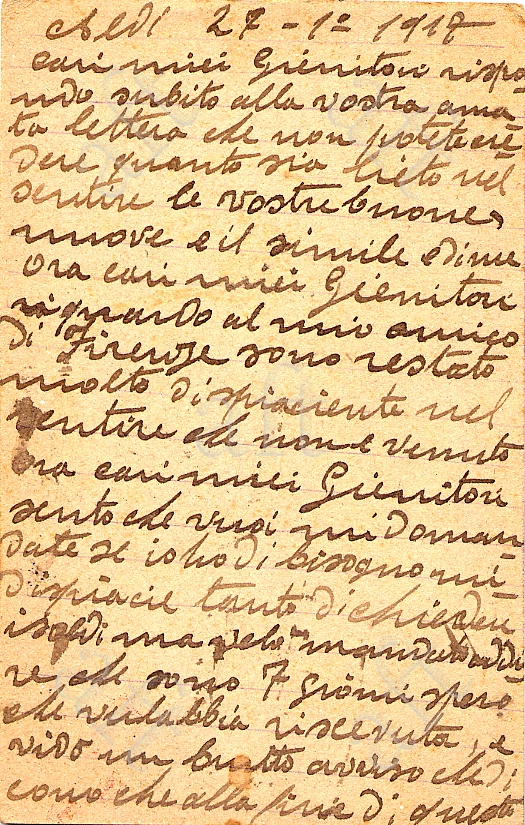 li 27 - 1º 1917
cari miei Gienitori rispo
ndo subito alla vostra ama
ta lettera che non potete cre
dere quanto sia lieto nel
sentire le vostre buone
nuove e il simile è di me
Ora cari miei Gienitori
riguardo al mio amico
di Firenze sono restato
molto dispiaciente nel
sentire che non è venuto
ora cari miei Gienitori
sento che vuoi mi doman
date se io ho di bisogno mi
dispiacie tanto di chiedere
i soldi ma velo mandato addi
re che sono 7 giorni spero
che vulabbia riscevuta, e
vido un butto avviso che di
cono che alla fine di questo